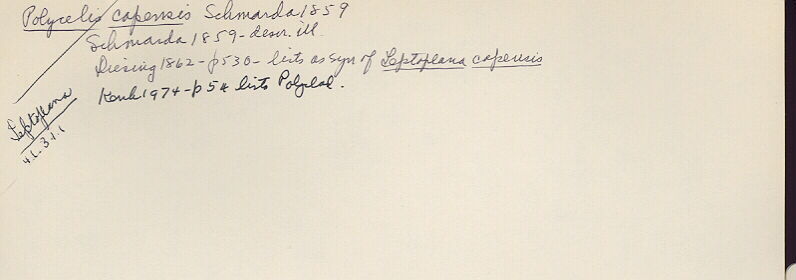 Polycelis capensis Schmarda 1859
Schmarda 1859 - descr. ill.
Diesing 1862 - p 530 - lists as syn of Leptoplana capensis
1974 - p 54 lists Polyclad.
Leptoplana
41.31.1